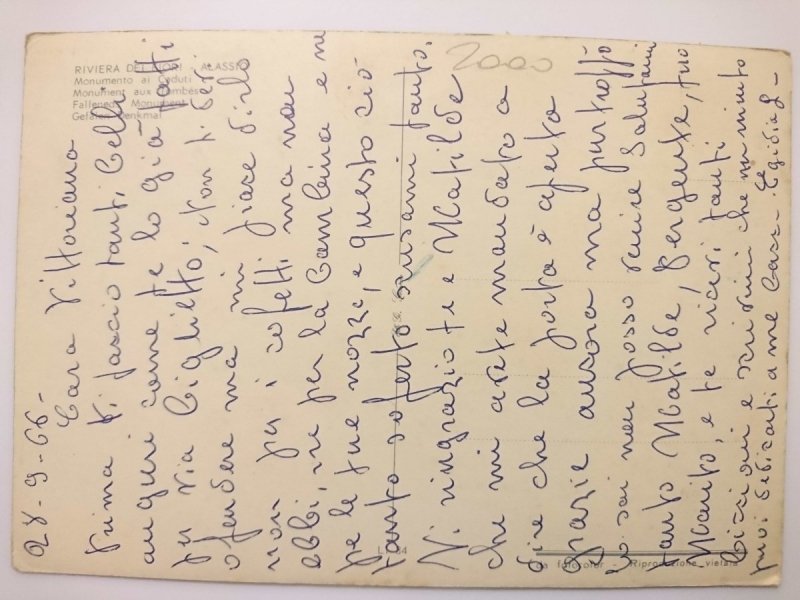 RIVIERA DEI FIORI - ALASSIO
Monumento ai Caduti
Monument aux Tombés
Fallenede Monument
Gefallen Denkmal
2000
28-9-66-
Cara Vittoriana
Prima ti faccio tanti belli
auguri come te lo già fatti
per via Biglietto; non ti devi
ofendere ma mi piace dirlo
non per i cofetti ma non
ebbi, ne per la bambina e ne
pe le tue nozze, e questo ciò
tanto soferto scusami tanto.
Vi ringrazio te e Matilde
che mi avete mandato a
dire che la porta è aperta
grazie ancora ma purtroppo
lo sai non posso venire Salutami
tanto Matilde, tuo
Marito, e te ricevi tanti
Bacioni e scrivimi che un minuto
puoi dedicarti a me Baci-
Egidia
fotocolor - Riproduzione vietata